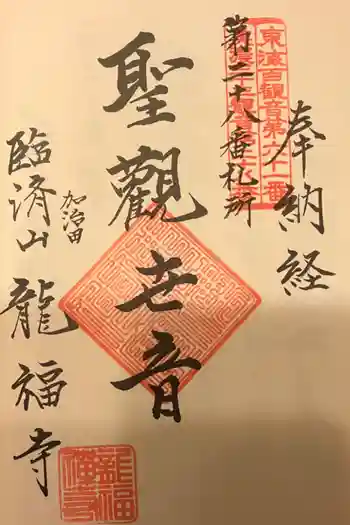 奉納経
東海百観音第六十一番
第二十八番札所
聖觀世音
加治田
臨済山
龍福寺
龍福禅寺